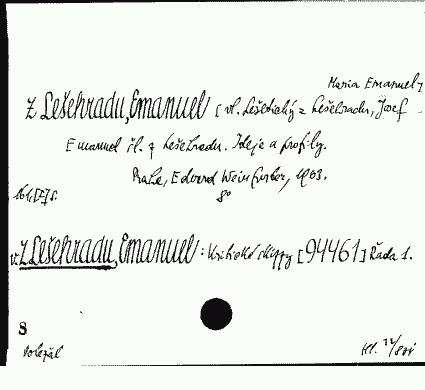 Maria Emanuel
z Lešehradu, Emanuel [vl. Lešetický z Lešehradu, Josef
Emanuel šl. z Lešehradu. Ideje a profily.
Praha, Eduard Weinfurter, 1903.
8°
v: Z Lešehradu, Emanuel: Kritické skizzy [94461] Řada 1.
8